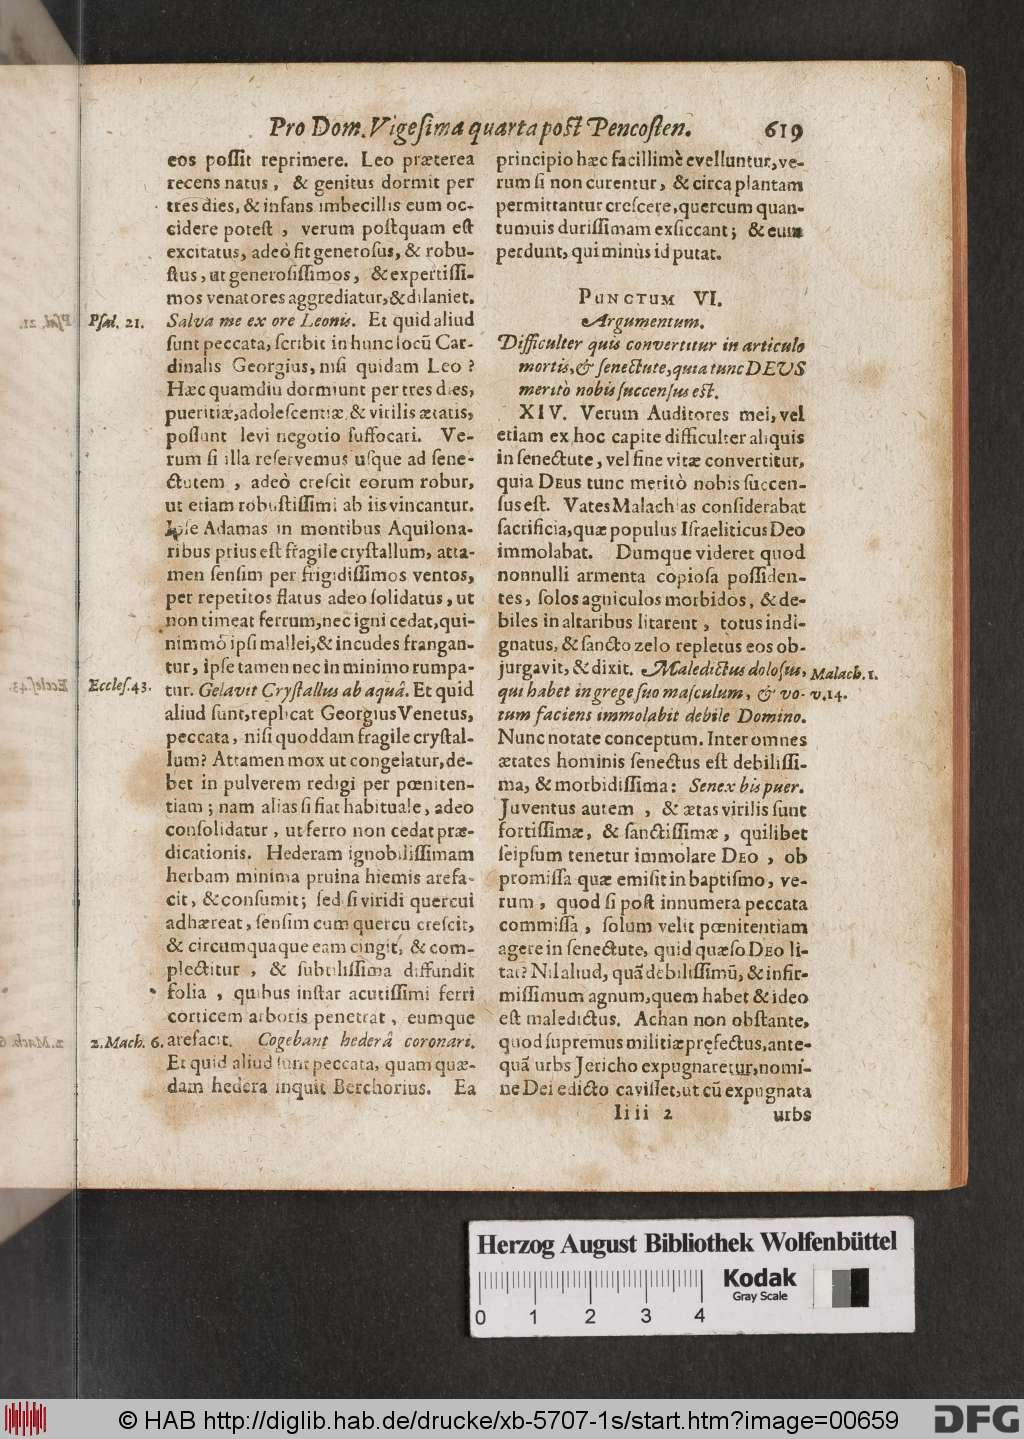 Pro Dom. Vigesima quarta post Pencosten. 619
eos possit reprimere. Leo præterea
recens natus, & genitus dormit per
tres dies, & infans imbecillis eum oc-
cidere potest, verum postquam est
excitatus, adeò fit generosus, & robu-
stus, ut generosissimos, & expertissi-
mos venatores aggrediatur, & dilaniet.
Psal. 21. Salva me ex ore Leonis. Et quid aliud
sunt peccata, scribit in hunc locũ Car-
dinalis Georgius, nisi quidam Leo?
Hæc quamdiu dormiunt per tres dies,
pueritiæ, adolescentiæ & virilis ætatis,
possunt levi negotio suffocari. Ve-
rum si illa reservemus usque ad sene-
ctutem, adeò crescit eorum robur,
ut etiam robustissimi ab iis vincantur.
Ipse Adamas in montibus Aquilona-
ribus prius est fragile crystallum, atta-
men sensim per frigidissimos ventos,
per repetitos flatus adeo solidatus, ut
non timeat ferrum, nec igni cedat, qui-
nimmò ipsi mallei, & incudes frangan-
tur, ipse tamen nec in minimo rumpa-
Eccles. 43. tur. Gelavit Crystallus ab aquâ. Et quid
aliud sunt, replicat Georgius Venetus,
peccata, nisi quoddam fragile crystal-
lum? Attamen mox ut congelatur, de-
bet in pulverem redigi per pœniten-
tiam; nam alias si fiat habituale, adeo
consolidatur, ut ferro non cedat præ-
dicationis. Hederam ignobilissimam
herbam minima pruina hiemis arefa-
cit, & consumit; sed si viridi quercui
adhæreat, sensim cum quercu crescit,
& circumquaque eam cingit, & com-
plectitur, & subtilissima diffundit
folia, quibus instar acutissimi ferri
corticem arboris penetrat, eumque
2. Mach. 6. arefacit. Cogebant hederâ coronari.
Et quid aliud sunt peccata, quam quæ-
dam hedera inquit Berchorius. Ea
principio hæc facillimè evelluntur, ve-
rum si non curentur, & circa plantam
permittantur crescere, quercum quan-
tumuis durissimam exsiccant; & eum
perdunt, qui minùs id putat.
PUNCTUM VI.
Argumentum.
Difficulter quis convertitur in articulo
mortis, & senectute, quia tunc DEUS
meritò nobis succensus est.
XIV. Verum Auditores mei, vel
etiam ex hoc capite difficulter aliquis
in senectute, vel fine vitæ convertitur,
quia DEUS tunc meritò nobis succen-
sus est. Vates Malachias considerabat
sacrificia, quæ populus Israeliticus Deo
immolabat. Dumque videret quod
nonnulli armenta copiosa possiden-
tes, solos agniculos morbidos, & de-
biles in altaribus litarent, totus indi-
gnatus, & sancto zelo repletus eos ob-
jurgavit, & dixit. Maledictus dolosus, Malach. 1.
qui habet in grege suo masculum, & vo- v. 14.
tum faciens immolabit debile Domino.
Nunc notate conceptum. Inter omnes
ætates hominis senectus est debilissi-
ma, & morbidissima: Senex bis puer.
Juventus autem, & ætas virilis sunt
fortissimæ, & sanctissimæ, quilibet
seipsum tenetur immolare DEO, ob
promissa quæ emisit in baptismo, ve-
rum, quod si post innumera peccata
commissa, solum velit pœnitentiam
agere in senectute, quid quæso DEO li-
tat? Nil aliud, quã debilissimũ, & infir-
missimum agnum, quem habet & ideo
est maledictus. Achan non obstante,
quod supremus militiæ pręfectus, ante-
quã urbs Jericho expugnaretur, nomi-
ne Dei edicto cavisset, ut cũ expugnata
Iiii 2 urbs
Herzog August Bibliothek Wolfenbüttel
Kodak
Gray Scale
0 1 2 3 4
© HAB http://diglib.hab.de/drucke/xb-5707-1s/start.htm?image=00659
DFG